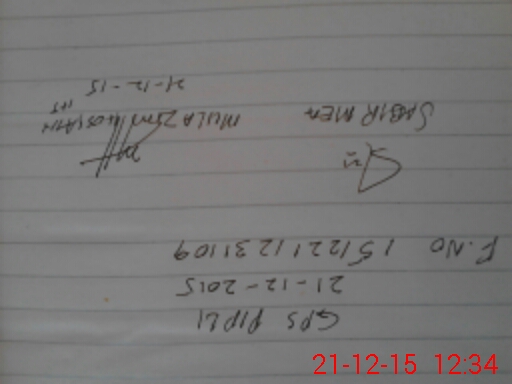 GPS PIPLI
21-12-2015
F.NO 151221123109
SABIR MULAZIM
21-12-15
21-12-15 12:34